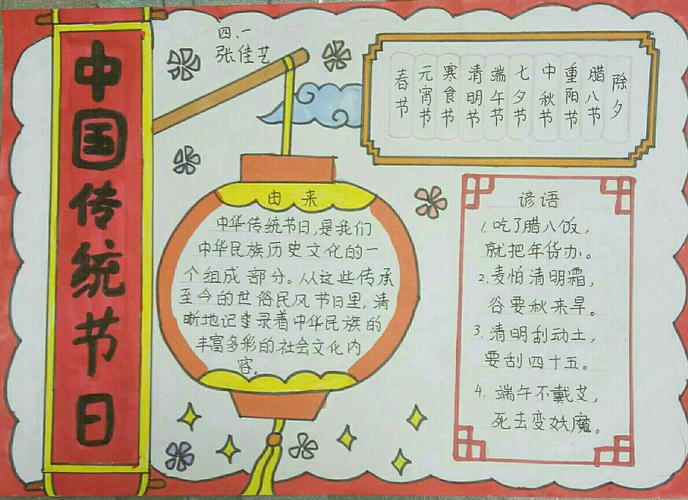 中国传统节日
四、一
张佳艺
春节
元宵节
寒食节
清明节
端午节
七夕节
中秋节
重阳节
腊八节
除夕
由来
中华传统节日,是我们
中华民族历史文化的一
个组成部分。从这些传承
至今的世俗民风节日里,清
晰地记录着中华民族的
丰富多彩的社会文化内
容。
谚语
1. 吃了腊八饭,
就把年货办。
2. 麦怕清明霜,
谷要秋来旱。
3. 清明刮动土,
要刮四十五。
4. 端午不戴艾,
死去变妖魔。